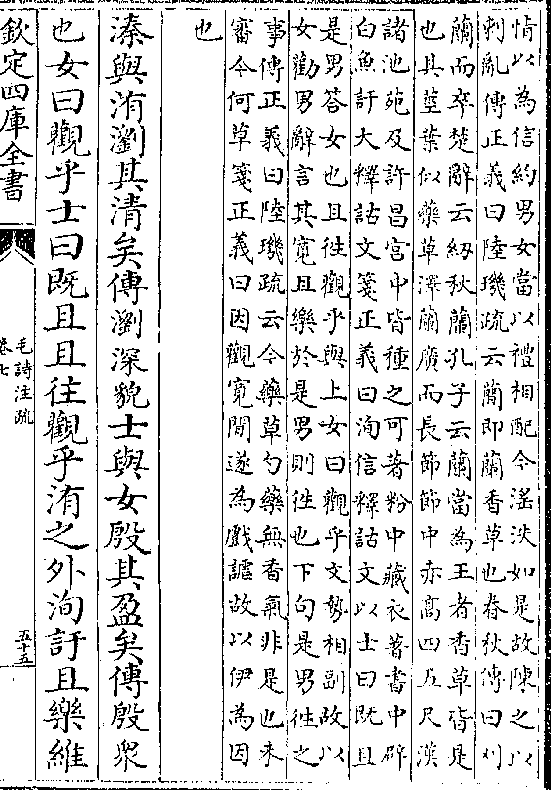 情以為信約男女當以禮相配今淫泆如是故陳之以
刺亂傳正義曰陸璣疏云蕳即蘭香草也春秋傳曰刈
蘭而卒楚辭云紉秋蘭孔子云蘭當為王者香草皆是
也其莖葉似藥草澤蘭廣而長節節中赤高四五尺漢
諸池苑及許昌宮中皆種之可著粉中藏衣著書中辟
白魚訏大釋詁文箋正義曰洵信釋詁文以士曰既且
是男荅女也且往觀乎與上女曰觀乎文勢相副故以
女勸男辭言其寛且樂於是男則往也下句是男往之
事傳正義曰陸璣疏云今藥草勺藥無香氣非是也未
審今何草箋正義曰因觀寛閒遂為戲謔故以伊為因
也
溱與洧瀏其清矣傳瀏深貌士與女殷其盈矣傳殷衆
也女曰觀乎士曰既且且往觀乎洧之外洵訏且樂維
欽定四庫全書
毛詩注疏
卷七
五十五